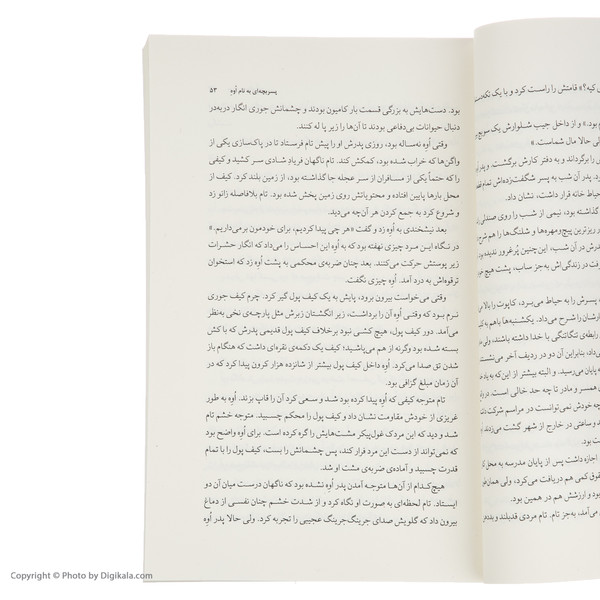 ۵۳ پسربچه‌ای به نام اُوِه
بود. دست‌هایش به بزرگی قسمت بار کامیون بودند و چشمانش جوری انگار دربه‌در
دنبال حیوانات بی‌دفاعی بودند تا آن‌ها را زیر پا له کنند.
وقتی اُوِه نه‌ساله بود، روزی پدرش او را پیش تام فرستاد تا در پاک‌سازی یکی از
واگن‌ها که خراب شده بود، کمکش کند. تام ناگهان فریادِ شادی سر کشید و کیفی
را که حتماً یکی از مسافران از سر عجله جا گذاشته بود، از زمین بلند کرد. کیف از
محل بارها پایین افتاده و محتویاتش روی زمین پخش شده بود. تام بلافاصله زانو زد
و شروع کرد به جمع کردن هر آن‌چه می‌دید.
بعد نیشخندی به اُوِه زد و گفت «هر چی پیدا کردیم، برای خودمون برمی‌داریم.»
در نگاه این مرد چیزی نهفته بود که به اُوِه این احساس را می‌داد که انگار حشرات
زیر پوستش حرکت می‌کنند. بعد چنان ضربه‌ی محکمی به پشت اُوِه زد که استخوان
ترقوه‌اش به درد آمد. اُوِه چیزی نگفت.
وقتی می‌خواست بیرون برود، پایش به یک کیف پول گیر کرد. چرم کیف جوری
نرم بود که وقتی اُوِه آن را برداشت، زیر انگشتان زبرش مثل پارچه‌ی نخی به‌نظر
می‌آمد. دور کیف پول، هیچ کشی نبود برخلاف کیف پول قدیمی پدرش که با کش
بسته شده بود وگرنه از هم می‌پاشید؛ کیف یک دکمه‌ی نقره‌ای داشت که هنگام باز
شدن تق صدا می‌کرد. اُوِه داخل کیف پول بیشتر از شانزده هزار کرون پیدا کرد که در
آن زمان مبلغ گزافی بود.
تام متوجه کیفی که اُوِه پیدا کرده بود شد و سعی کرد آن را قاپ بزند. اُوِه به طور
غریزی از خودش مقاومت نشان داد و کیف پول را محکم چسبید. متوجه خشم تام
شد و دید که این مردک غول‌پیکر مشت‌هایش را گره کرده است. برای اُوِه واضح بود
که نمی‌تواند از دست این مرد فرار کند، پس چشمانش را بست، کیف پول را با تمام
قدرت چسبید و آماده‌ی ضربه‌ی مشت او شد.
هیچ‌کدام از آن‌ها متوجه آمدن پدر اُوِه نشده بود که ناگهان درست میان آن دو
ایستاد. تام لحظه‌ای به صورت او نگاه کرد و از شدت خشم چنان نفسی از دماغ
بیرون داد که گلویش صدای جرینگ‌جرینگ عجیبی را تجربه کرد. ولی حالا پدر اُوِه
کیه؟» قامتش را راست کرد و با یک تکه
بود.» و از داخل جیب شلوارش یک سویچ
حالا مال شماست.»
را برگرداند و به دفتر کارش برگشت. و پدر
پدر آن شب به پسر شگفت‌زده‌اش تمام
حیاط خانه قرار داشت، نشان داد.
گذاشته بود، نیمی از شب را روی صندلی
ریزترین پیچ‌ومهره‌ها و شلنگ‌ها را هم شرح
در آن شب، این‌چنین پُرغرور ندیده
در زندگی‌اش به‌جز ساب، پشت هیچ
پسرش را به حیاط می‌برد، کاپوت را بالا
را شرح می‌داد. یکشنبه‌ها باهم به
رابطه‌ی تنگاتنگی با خدا داشته باشند، ولی
بنابراین آن دو در ردیف آخر می‌نشستند
به پایان می‌رسید. و البته بیشتر از این‌که به
همسر و مادر تا چه حد خالی است.
خودش نمی‌توانست در مراسم شرکت
و ساعتی در خارج از شهر گشت می‌زدند
بود.
اجازه داشت پس از پایان مدرسه به محل
کمی هم دریافت می‌کرد، ولی
بود و ارزشش هم در همین بود.
می‌آمد، به‌جز تام. تام مردی قدبلند و
Copyright © Photo by Digikala.com